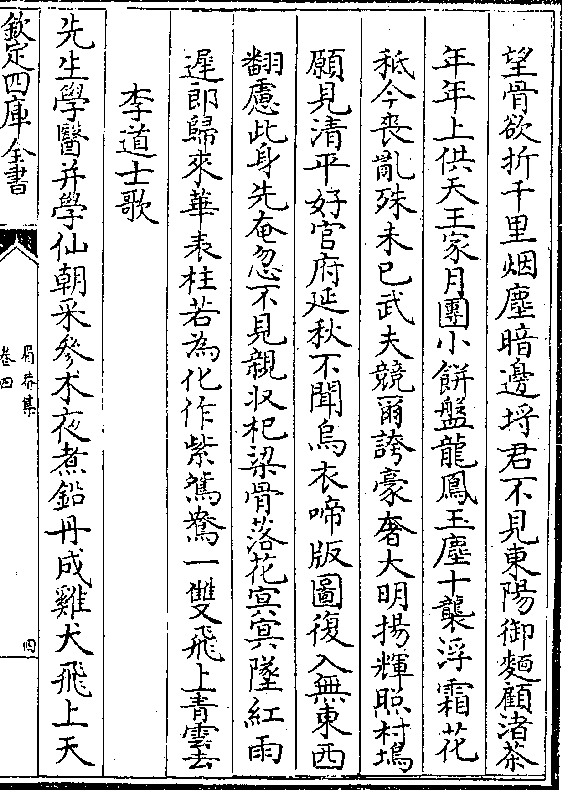 望骨欲折千里烟塵暗邊埒君不見東陽御麵顧渚茶
年年上供天王家月團小餅盤龍鳳玉塵十襲浮霜花
秪今喪亂殊未已武夫競爾誇豪奢大明揚輝照村塢
願見清平好官府延秋不聞烏衣啼版圖復入無東西
翻慮此身先奄忽不見親収杞梁骨落花㝠㝠墜紅雨
遲郎歸來華表柱若為化作紫鴛鴦一雙飛上青雲去
李道士歌
先生學醫并學仙朝采參朮夜煮鉛丹成雞犬飛上天
欽定四庫全書
眉菴集
卷四
四